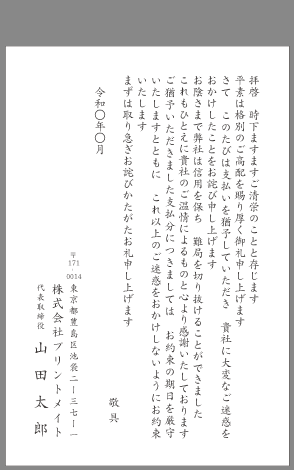 拝啓　時下ますますご清栄のことと存じます
平素は格別のご高配を賜り厚く御礼申し上げます
さて　このたびは支払いを猶予していただき　貴社に大変なご迷惑を
おかけしたことをお詫び申し上げます
お陰さまで弊社は信用を保ち　難局を切り抜けることができました
これもひとえに貴社のご温情によるものと心より感謝いたしております
ご猶予いただきました支払分につきましては　お約束の期日を厳守
いたしますとともに　これ以上のご迷惑をおかけしないようにお約束
いたします
まずは取り急ぎお詫びかたがたお礼申し上げます
敬具
令和〇年〇月
〒171-0014
東京都豊島区池袋二ー三七ー一
株式会社プリントメイト
代表取締役　山田太郎